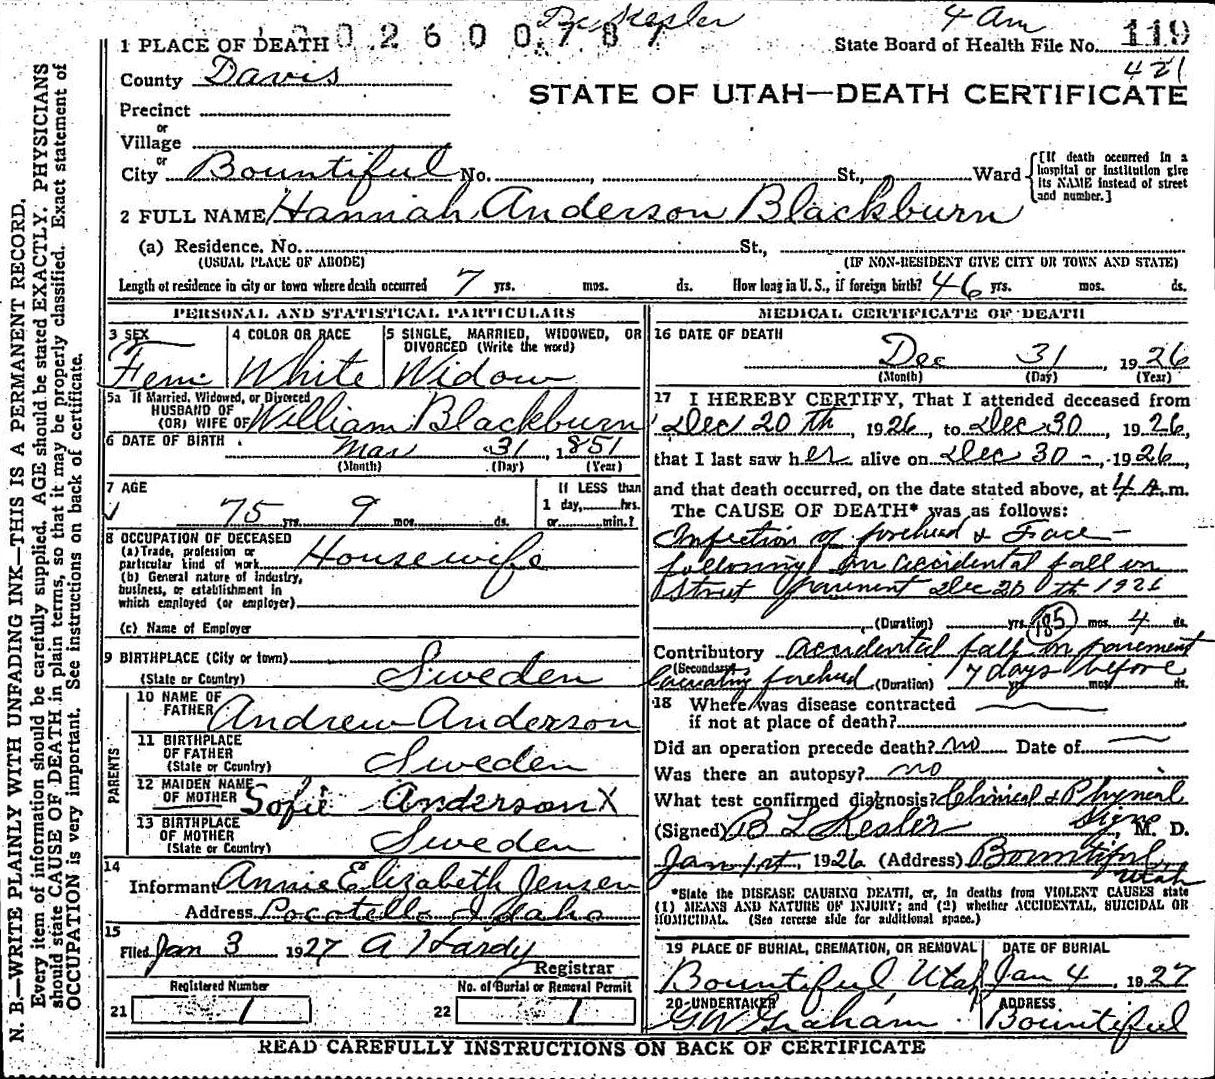 B. Kesler 4 Am
1 PLACE OF DEATH 002600787 State Board of Health File No. 119
421
County Davis
STATE OF UTAH—DEATH CERTIFICATE
Precinct
or
Village
or
City Bountiful No. , St., Ward {[If death occurred in a hospital or institution give its NAME instead of street and number.]
2 FULL NAME Hannah Anderson Blackburn
(a) Residence. No. St.,
(USUAL PLACE OF ABODE) (IF NON-RESIDENT GIVE CITY OR TOWN AND STATE)
Length of residence in city or town where death occurred 7 yrs. mos. ds. How long in U. S., if foreign birth? 46 yrs. mos. ds.
PERSONAL AND STATISTICAL PARTICULARS
3 SEX 4 COLOR OR RACE 5 SINGLE, MARRIED, WIDOWED, OR DIVORCED (Write the word)
Fem White Widow
5a If Married, Widowed, or Divorced
HUSBAND OF
(OR) WIFE OF William Blackburn
6 DATE OF BIRTH Mar 31, 1851
(Month) (Day) (Year)
7 AGE If LESS than
1 day, hrs.
75 yrs. 9 mos. ds. or min.?
8 OCCUPATION OF DECEASED
(a) Trade, profession or
particular kind of work Housewife
(b) General nature of industry,
business, or establishment in
which employed (or employer)
(c) Name of Employer
9 BIRTHPLACE (City or town)
(State or Country) Sweden
PARENTS
10 NAME OF
FATHER Andrew Anderson
11 BIRTHPLACE
OF FATHER
(State or Country) Sweden
12 MAIDEN NAME
OF MOTHER Sofie Anderson X
13 BIRTHPLACE
OF MOTHER
(State or Country) Sweden
14
Informant Annie Elizabeth Jensen
Address Pocotello Idaho
15
Filed Jan 3 1927 A Hardy
Registrar
Registered Number No. of Burial or Removal Permit
21 1 22 1
MEDICAL CERTIFICATE OF DEATH
16 DATE OF DEATH
Dec 31, 1926
(Month) (Day) (Year)
17 I HEREBY CERTIFY, That I attended deceased from
Dec 20 th, 1926, to Dec 30, 1926,
that I last saw her alive on Dec 30 -, 1926,
and that death occurred, on the date stated above, at 4 A.m.
The CAUSE OF DEATH* was as follows:
Infection of forehead & Face -
following an accidental fall on
Street pavement Dec 20 th 1926
(Duration) yrs. 185 mos. 4 ds.
Contributory accidental fall on pavement
(Secondary) lacerating forehead (Duration) 7 days before yrs. mos. ds.
18 Where was disease contracted
if not at place of death?
Did an operation precede death? no Date of
Was there an autopsy? no
What test confirmed diagnosis? Clinical & Physical Signs
(Signed) B L Kesler, M. D.
Jan 1st, 1926 (Address) Bountiful Utah
*State the DISEASE CAUSING DEATH, or, in deaths from VIOLENT CAUSES state
(1) MEANS AND NATURE OF INJURY; and (2) whether ACCIDENTAL, SUICIDAL OR
HOMICIDAL. (See reverse side for additional space.)
19 PLACE OF BURIAL, CREMATION, OR REMOVAL DATE OF BURIAL
Bountiful, Utah Jan 4, 1927
20 UNDERTAKER ADDRESS
G W Graham Bountiful
READ CAREFULLY INSTRUCTIONS ON BACK OF CERTIFICATE
N. B.—WRITE PLAINLY WITH UNFADING INK—THIS IS A PERMANENT RECORD.
Every item of information should be carefully supplied. AGE should be stated EXACTLY. PHYSICIANS
should state CAUSE OF DEATH in plain terms, so that it may be properly classified. Exact statement of
OCCUPATION is very important. See instructions on back of certificate.